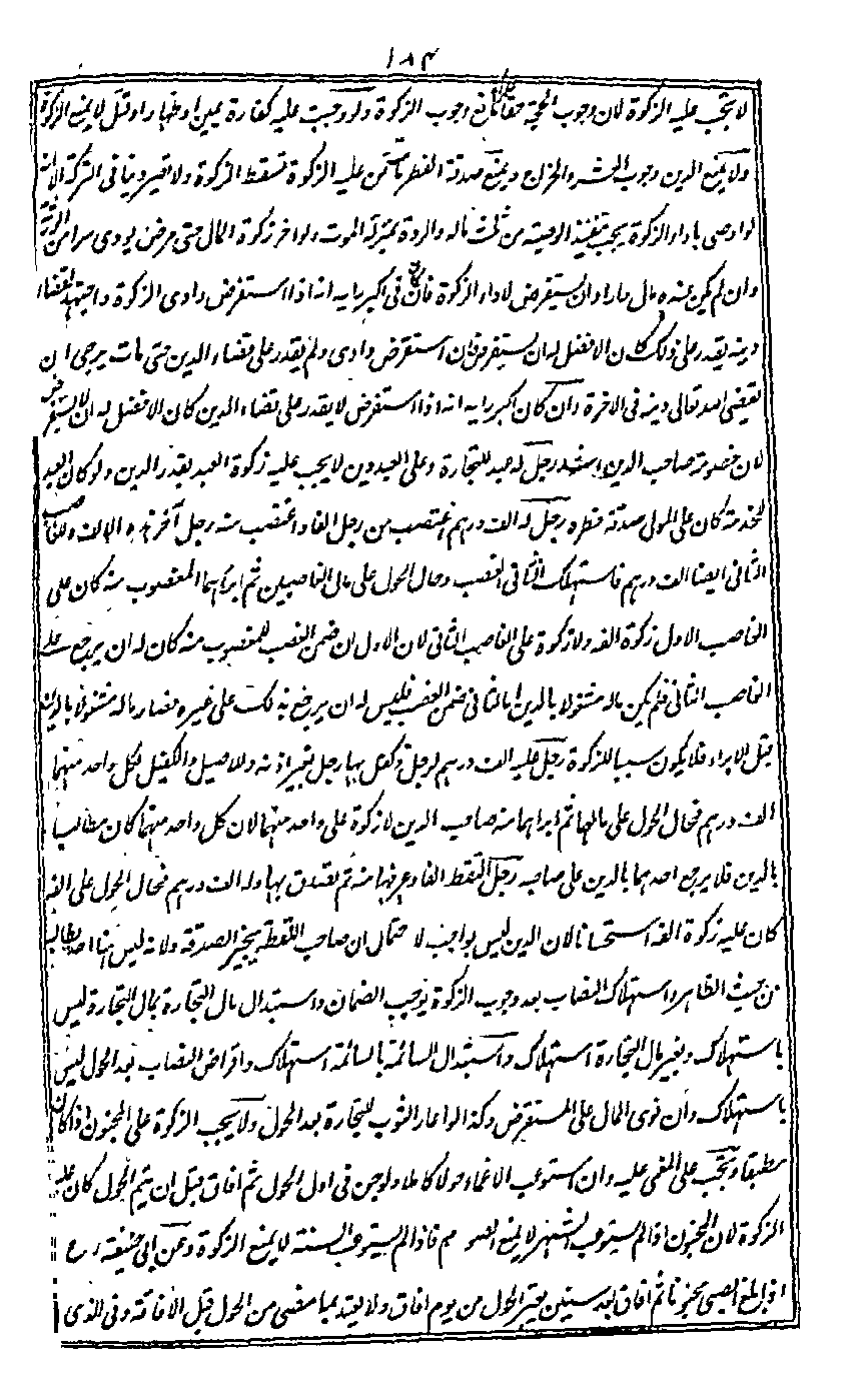 ١٨٣
لا يجب عليه الزكوة لان وجوب الحجة حقا لله تعالى فى وجوب الزكوة ولو وجبت عليه كفارة يمين او ظهار او قتل لا يمنع الزكوة
ولا يمنع الدين وجوب العشر والخراج ويمنع صدقة الفطر عليه الزكوة تسقط الزكوة ولا تصير دينا فى التركة الا انه
لو اوصى باداء الزكوة يجب تنفيذ الوصية من ثلث ماله والردة بمنزلة الموت ولو اخر زكوة المال حتى مرض يودى سرا من الورثة
وان لم يكن عنده مال فاراد ان يستقرض لاداء الزكوة فان كان فى اكبر رايه انه اذا استقرض وادى الزكوة واجتهد لقضاء
دينه يقدر على ذلك كان الافضل له ان يستقرض فان استقرض وادى ولم يقدر على قضاء الدين حتى مات يرجى ان
يقضى الله تعالى دينه فى الاخرة وان كان اكبر رايه انه اذا استقرض لا يقدر على قضاء الدين كان الافضل له ان لا يستقرض
لان خصومة صاحب الدين اشد رجل له عبد للتجارة وعلى العبد دين لا يجب عليه زكوة العبد بقدر الدين ولو كان العبد
للخدمة كان على المولى صدقة فطره رجل له الف درهم اغتصب من رجل الفا واغتصب منه رجل آخر هذه الالف وللغاصب
الثانى ايضا الف درهم فاستهلك الثانى الغصب وحال الحول على مالى الغاصبين ثم ابرأهما المغصوب منه كان على
الغاصب الاول زكوة الفه ولا زكوة على الغاصب الثانى لان الاول ان ضمن الغصب للمغصوب منه كان له ان يرجع على
الغاصب الثانى فلم يكن ماله مشغولا بالدين اما الثانى ضمن الغصب فليس له ان يرجع بذلك على غيره فصار ماله مشغولا بالدين
قبل الابراء فلا يكون سببا للزكوة رجل عليه الف درهم لرجل وكفل بها رجل بغير اذنه وللاصيل والكفيل لكل واحد منهما
الف درهم فحال الحول على مالهما ثم ابرأهما منه صاحب الدين لا زكوة على واحد منهما لان كل واحد منهما كان مطالبا
بالدين فلا يرجع احدهما بالدين على صاحبه رجل التقط الفا وعرفها سنة ثم تصدق بها وله الف درهم فحال الحول على الفه
كان عليه زكوة الفه استحسانا لان الدين ليس بواجب لاحتمال ان صاحب اللقطة يجيز الصدقة ولانه ليس هنا احد يطالبه
من حيث الظاهر واستهلاك النصاب بعد وجوب الزكوة يوجب الضمان واستبدال مال التجارة بمال التجارة ليس
باستهلاك وبغير مال التجارة استهلاك واستبدال السائمة بالسائمة استهلاك واقراض النصاب بعد الحول ليس
باستهلاك وان توى المال على المستقرض وكذا لو اعار الثوب للتجارة بعد الحول ولا يجب الزكوة على المجنون اذا كان
مطبقا وتجب على المغمى عليه وان استوعب الاغماء حولا كاملا ولو جن فى اول الحول ثم افاق قبل ان يتم الحول كان عليه
الزكوة لان الجنون اذا لم يستوعب الشهر لا يمنع الصوم فاذا لم يستوعب السنة لا يمنع الزكوة وعن ابى حنيفة رح
اذا بلغ الصبى مجنونا ثم افاق بعد سنين يعتبر الحول من يوم افاق ولا يعتد بما مضى من الحول قبل الافاقة وفى الذى